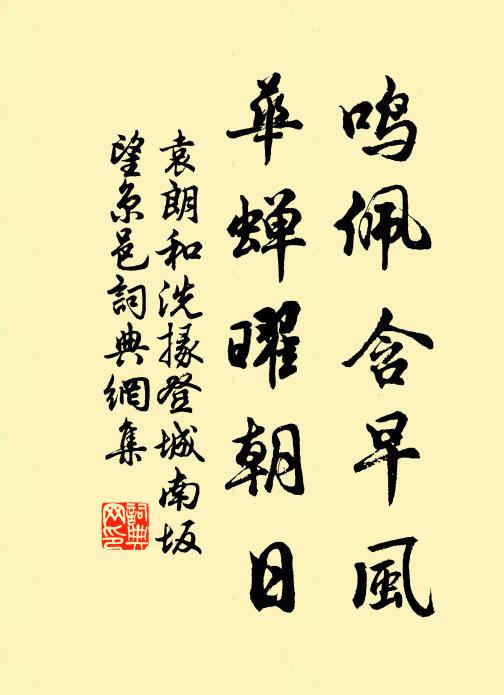 鸣佩含早風
華蝉曜朝日
袁朗和洗掾登城南坂
望京邑詞典網集
詞典
网印